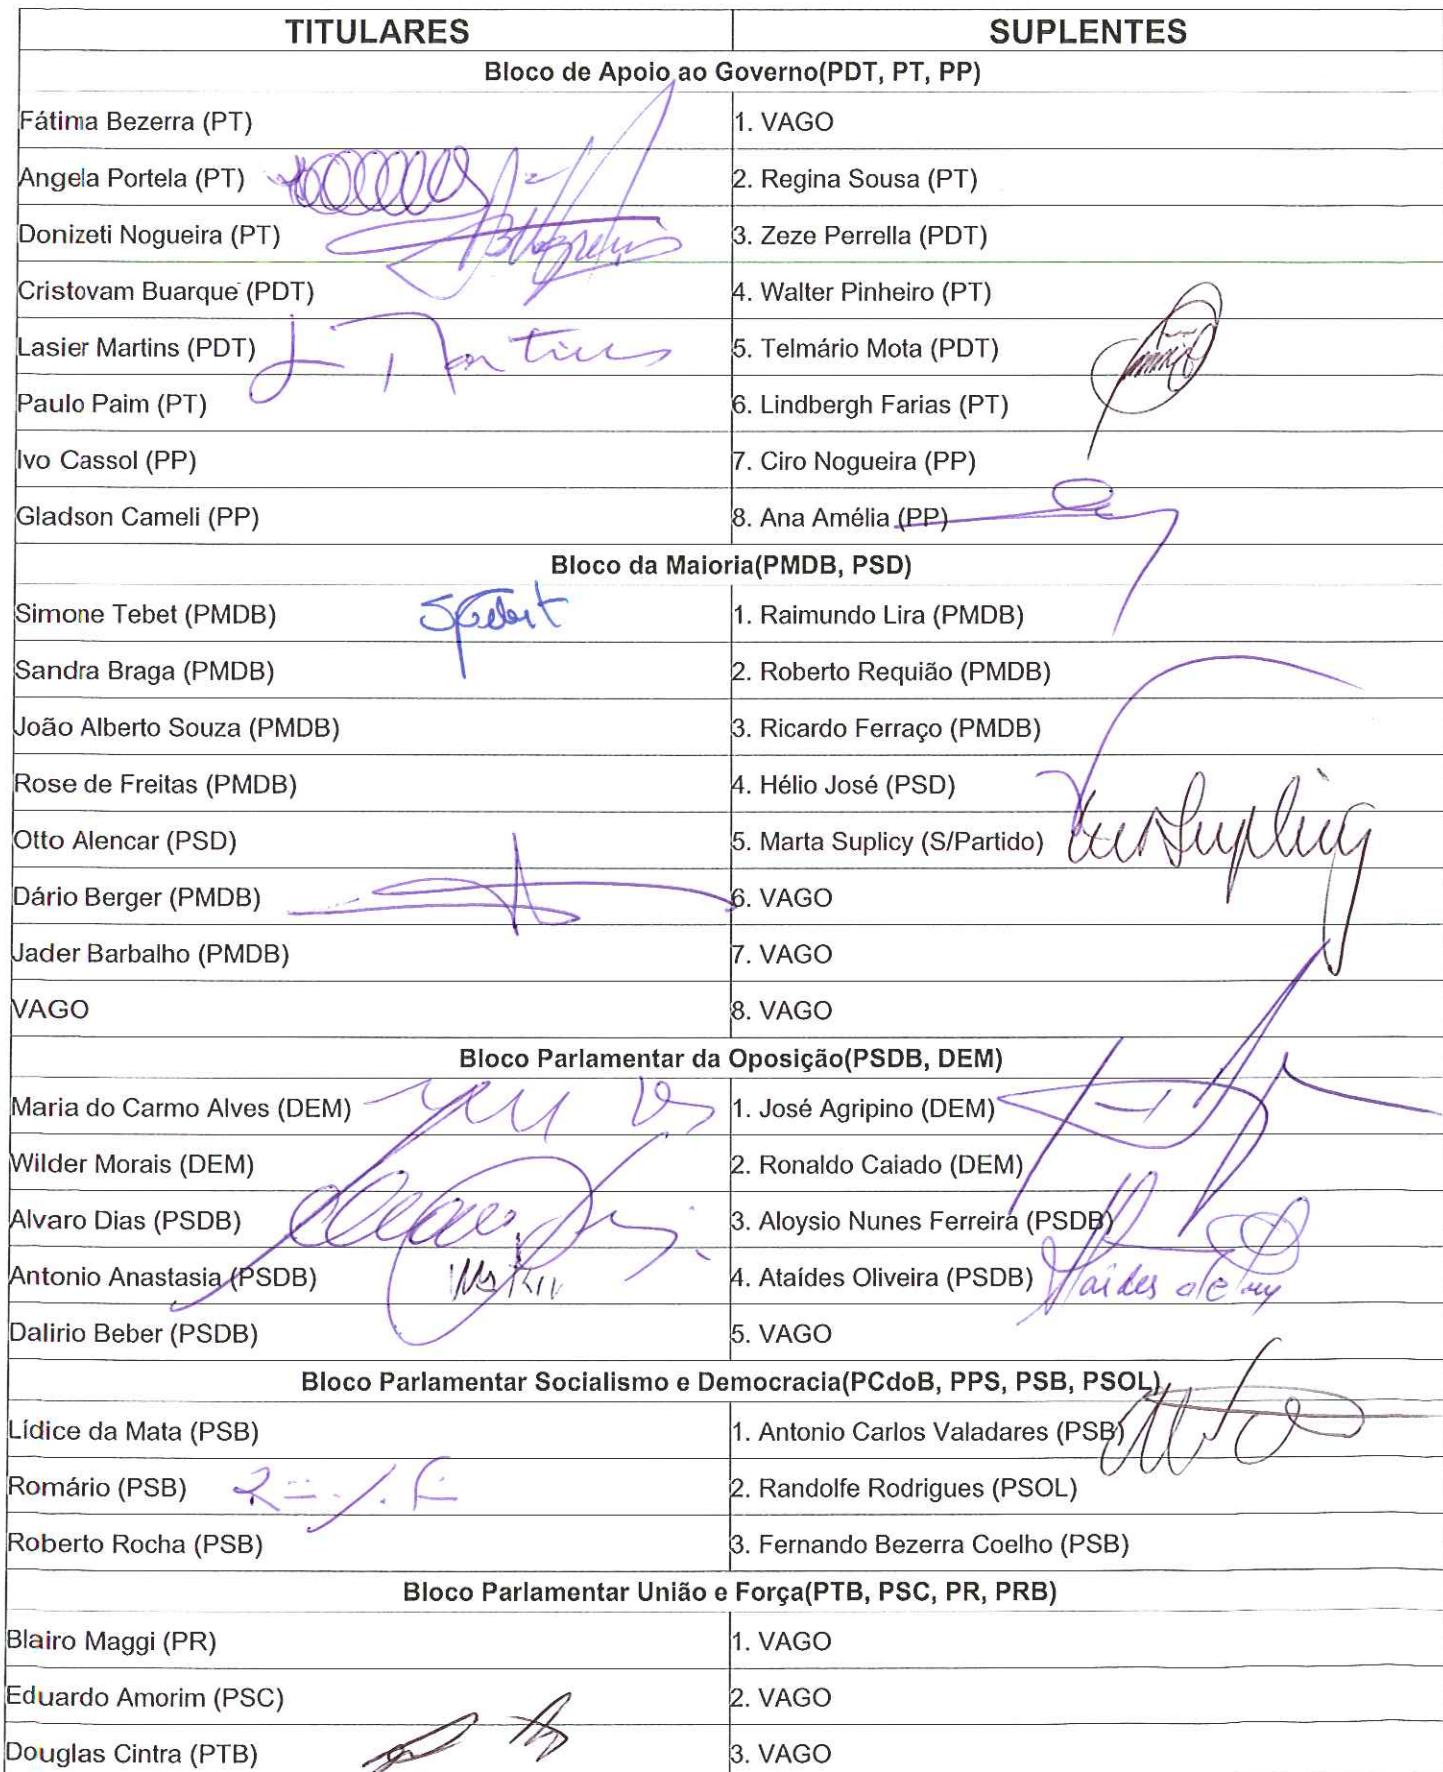 TITULARES SUPLENTES
Bloco de Apoio ao Governo(PDT, PT, PP)
Fátima Bezerra (PT) 1. VAGO
Angela Portela (PT) 2. Regina Sousa (PT)
Donizeti Nogueira (PT) 3. Zeze Perrella (PDT)
Cristovam Buarque (PDT) 4. Walter Pinheiro (PT)
Lasier Martins (PDT) 5. Telmário Mota (PDT)
Paulo Paim (PT) 6. Lindbergh Farias (PT)
Ivo Cassol (PP) 7. Ciro Nogueira (PP)
Gladson Cameli (PP) 8. Ana Amélia (PP)
Bloco da Maioria(PMDB, PSD)
Simone Tebet (PMDB) 1. Raimundo Lira (PMDB)
Sandra Braga (PMDB) 2. Roberto Requião (PMDB)
João Alberto Souza (PMDB) 3. Ricardo Ferraço (PMDB)
Rose de Freitas (PMDB) 4. Hélio José (PSD)
Otto Alencar (PSD) 5. Marta Suplicy (S/Partido)
Dário Berger (PMDB) 6. VAGO
Jader Barbalho (PMDB) 7. VAGO
VAGO 8. VAGO
Bloco Parlamentar da Oposição(PSDB, DEM)
Maria do Carmo Alves (DEM) 1. José Agripino (DEM)
Wilder Morais (DEM) 2. Ronaldo Caiado (DEM)
Alvaro Dias (PSDB) 3. Aloysio Nunes Ferreira (PSDB)
Antonio Anastasia (PSDB) 4. Ataídes Oliveira (PSDB)
Dalirio Beber (PSDB) 5. VAGO
Bloco Parlamentar Socialismo e Democracia(PCdoB, PPS, PSB, PSOL)
Lídice da Mata (PSB) 1. Antonio Carlos Valadares (PSB)
Romário (PSB) 2. Randolfe Rodrigues (PSOL)
Roberto Rocha (PSB) 3. Fernando Bezerra Coelho (PSB)
Bloco Parlamentar União e Força(PTB, PSC, PR, PRB)
Blairo Maggi (PR) 1. VAGO
Eduardo Amorim (PSC) 2. VAGO
Douglas Cintra (PTB) 3. VAGO